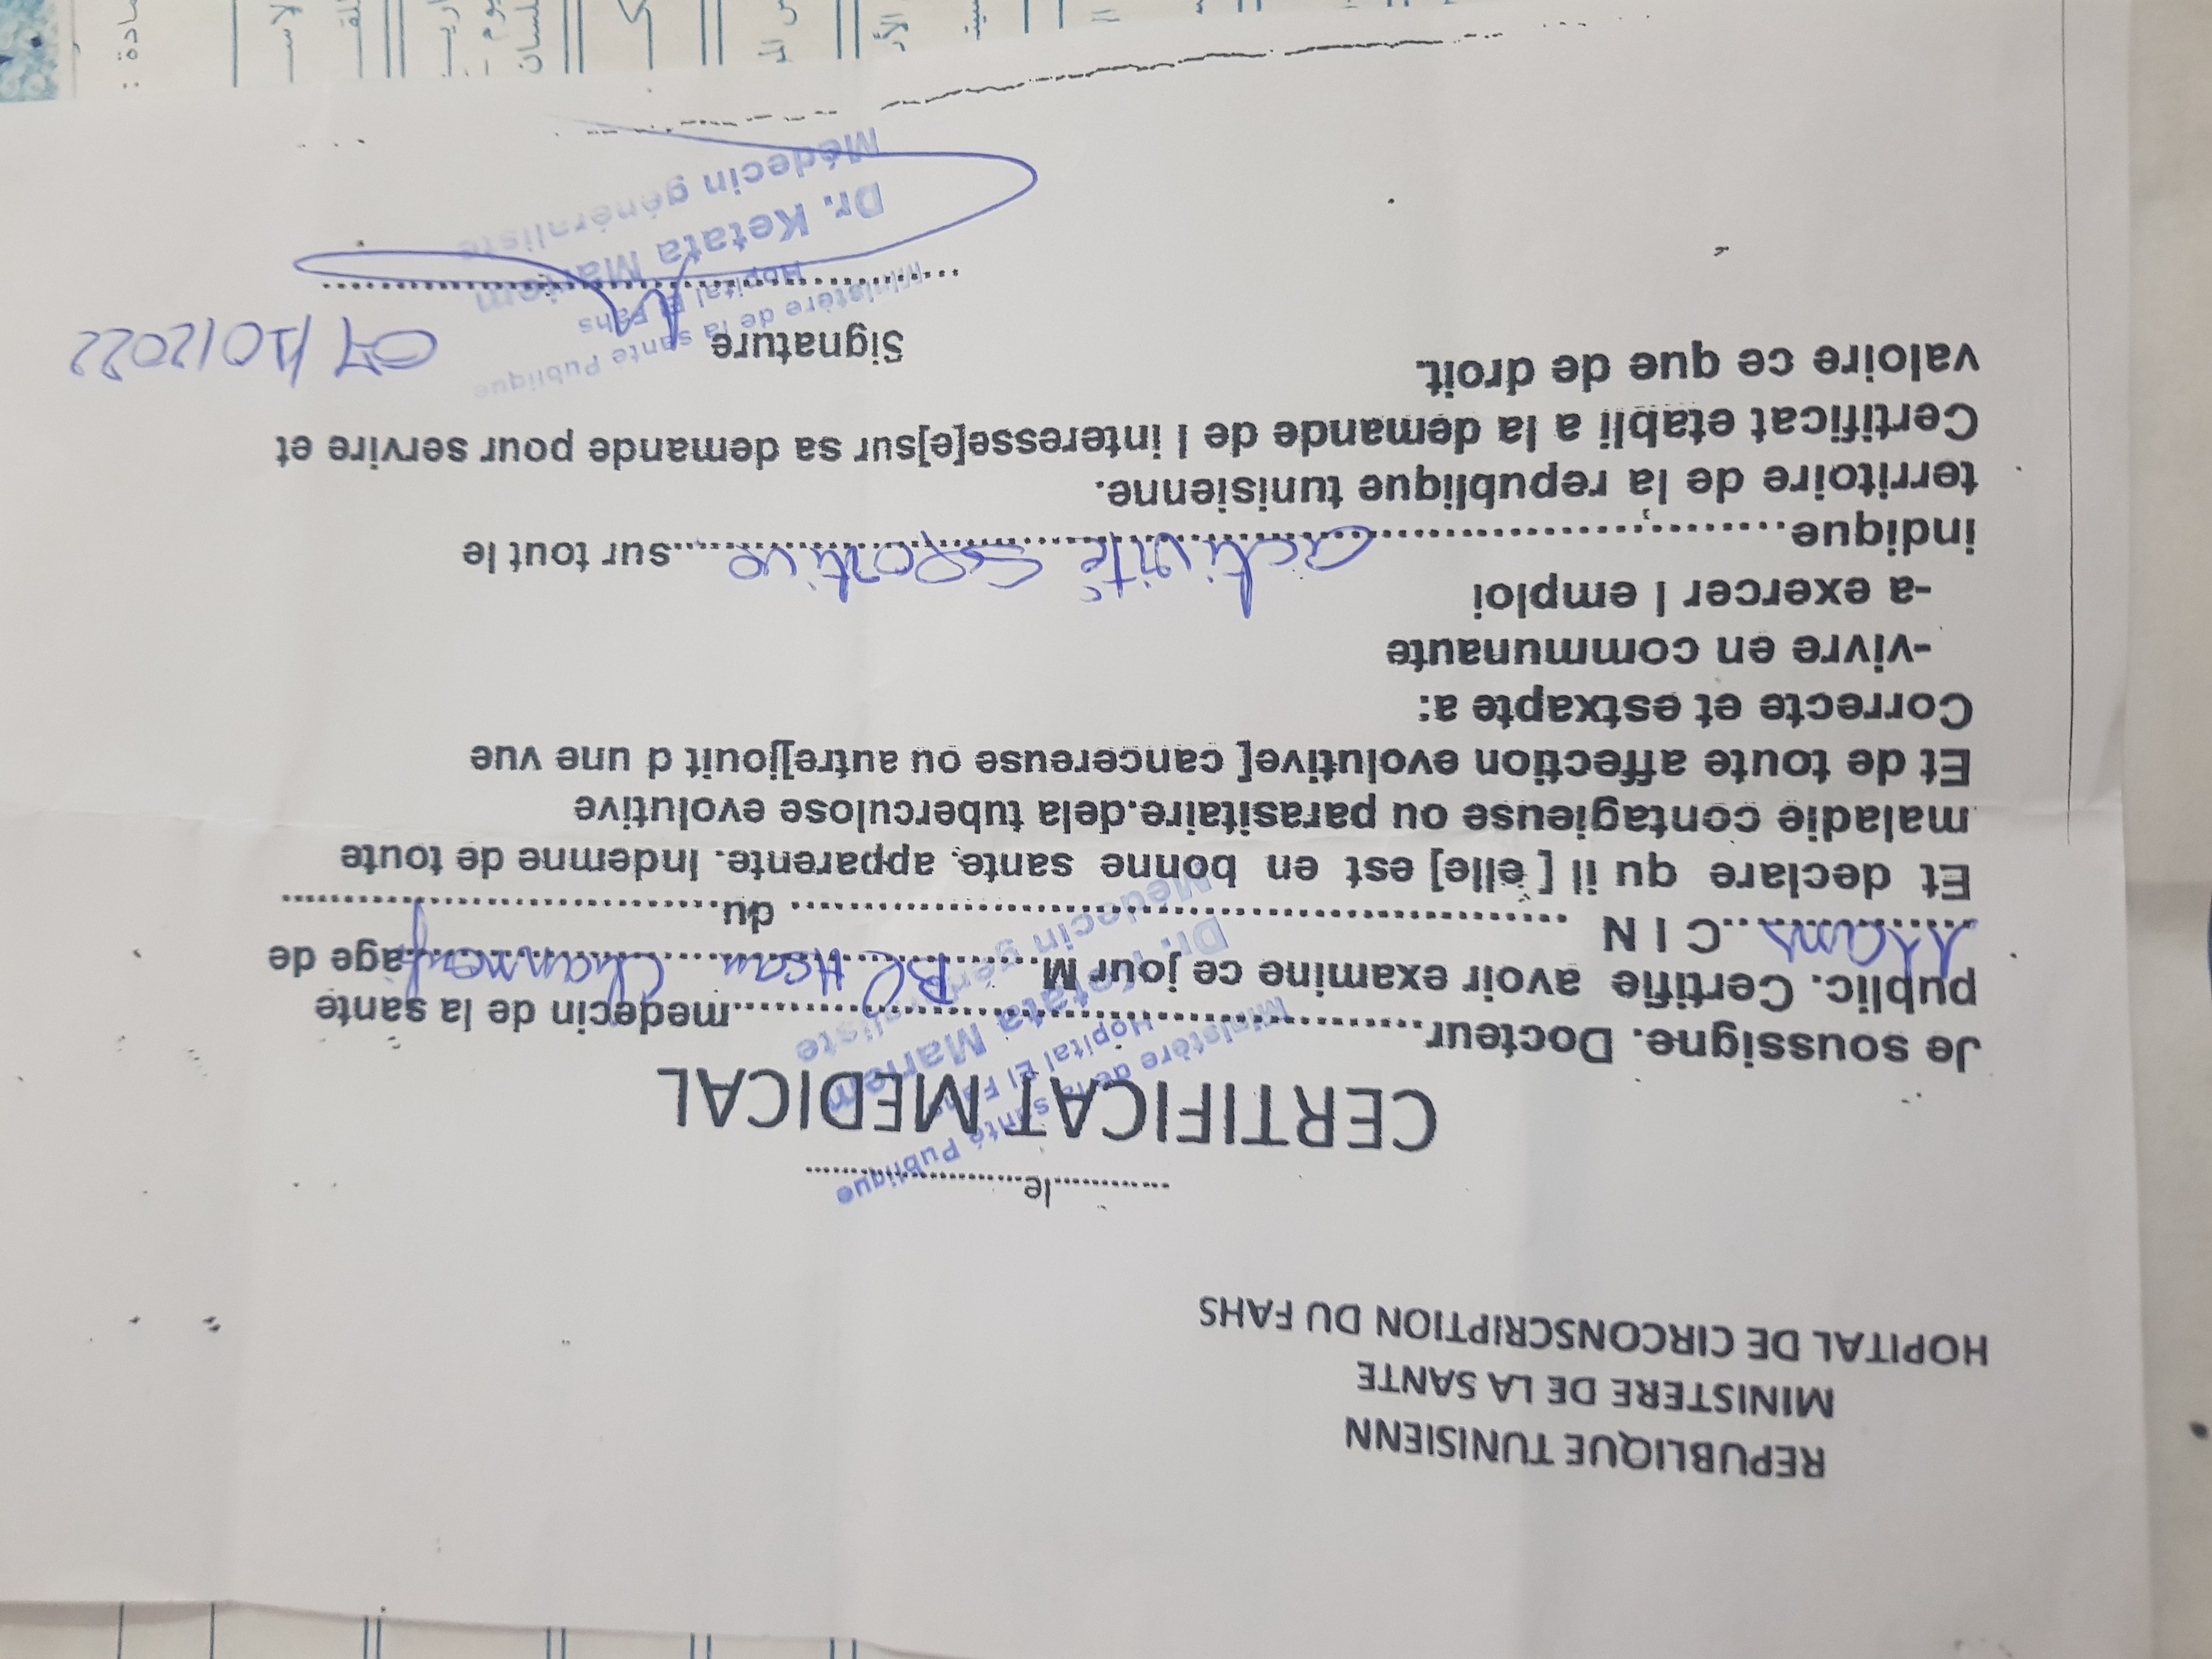 REPUBLIQUE TUNISIENN
MINISTERE DE LA SANTE
HOPITAL DE CIRCONSCRIPTION DU FAHS
............le......................
CERTIFICAT MEDICAL
Ministère de la santé Publique
Hopital El Fahs
Dr. Ketata Mariem
Médecin généraliste
Je soussigne. Docteur..............................medecin de la sante
public. Certifie avoir examine ce jour M.......................age de
ans...C I N ................................ du....................
Et declare qu il [ elle] est en bonne sante, apparente. Indemne de toute
maladie contagieuse ou parasitaire.dela tuberculose evolutive
Et de toute affection evolutive[ cancereuse ou autre]jouit d une vue
Correcte et estxapte a:
-vivre en communaute
-a exercer l emploi
indique.......activité sportive.......sur tout le
territoire de la republique tunisienne.
Certificat etabli a la demande de l interesse[e]sur sa demande pour servire et
valoire ce que de droit.
Signature 07/10/2022
Ministère de la santé Publique
Hopital El Fahs
Dr. Ketata Mariem
Médecin généraliste